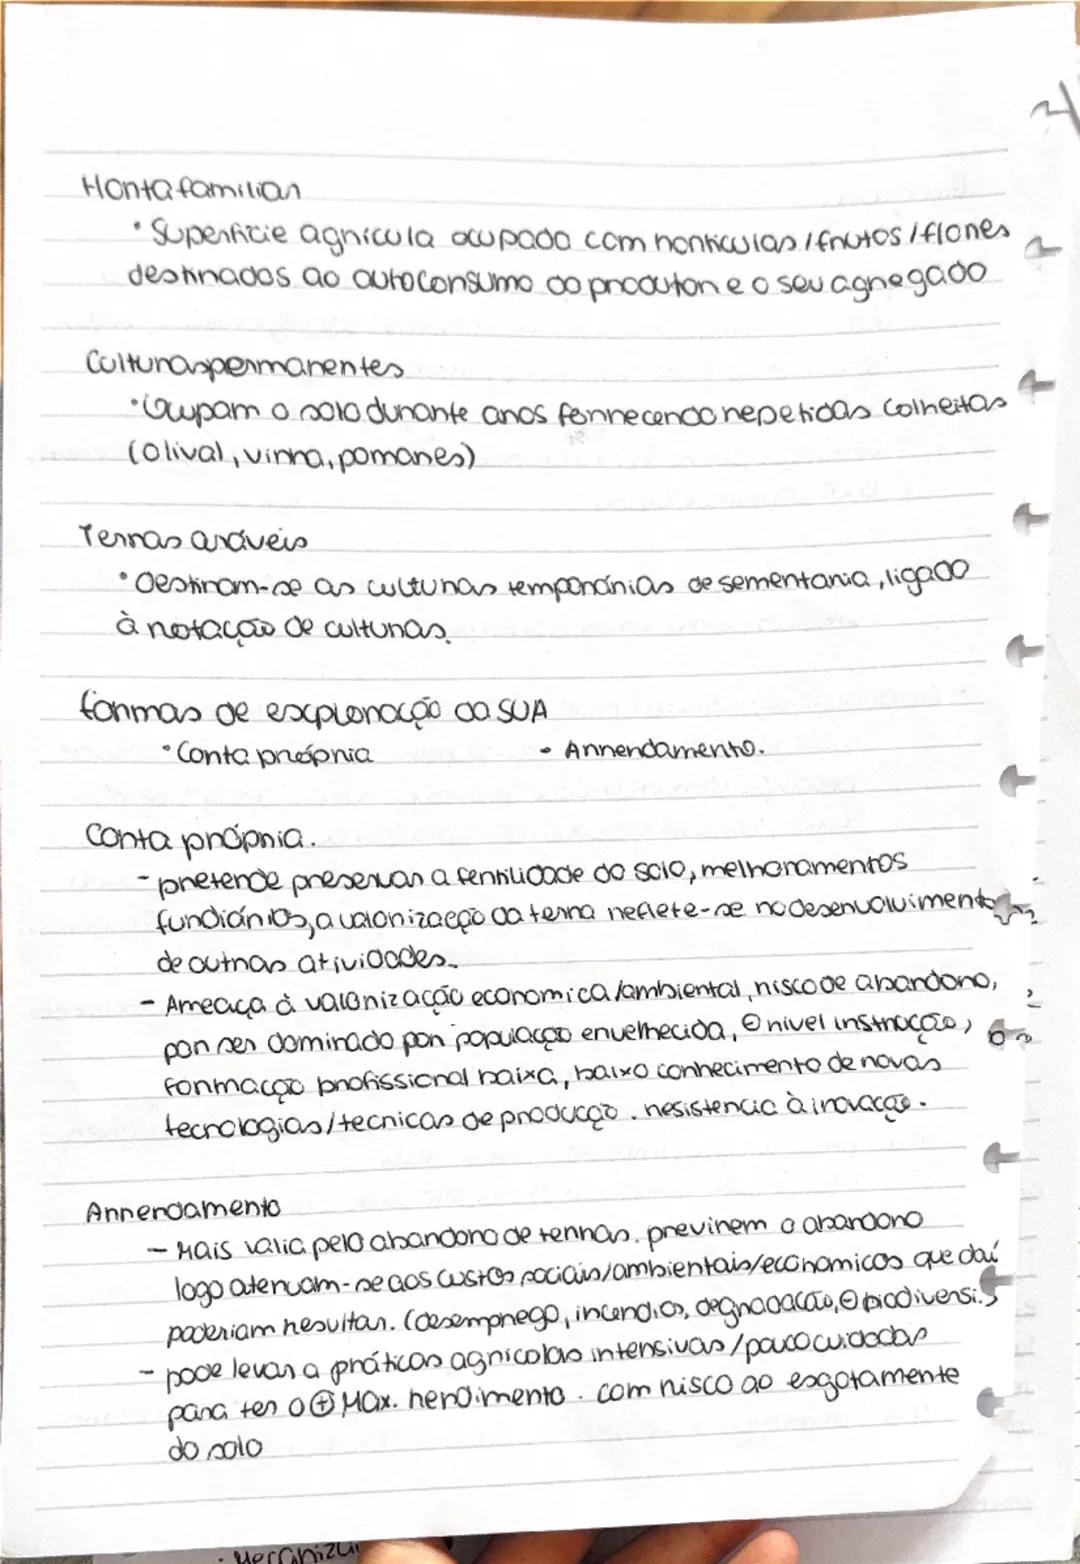 Horta familiar
• Superfície agrícula ocupada com horticulas / frutos / flores
destinados ao autoconsumo do produtor e o seu agregado
Culturas permanentes
• Ocupam o solo durante anos fornecendo repetidas colheitas
(Olival, vinha, pomares)
Terras aráveis
• Destinam-se as culturas temporárias de sementaria, ligado
à rotação de culturas.
formas de exploração da SUA
• Conta própria • Arrendamento.
Conta própria.
- pretende preservar a fertilidade do solo, melhoramentos
fundiários, a valorização da terra reflete-se no desenvolvimento
de outras atividades.
- Ameaça à valorização economica/ambiental, risco de abandono,
por ser dominado por população envelhecida, ⊖ nivel instrução,
formação profissional baixa, baixo conhecimento de novas
tecnologias/tecnicas de produção. resistencia à inovação.
Arrendamento
- Mais valia pelo abandono de terras. previnem o abandono
logo atenuam-se aos custos sociais/ambientais/economicos que daí
poderiam resultar. (desemprego, incendios, degradação, ⊖ biodiversi.)
- pode levar a práticas agricolas intensivas / pouco cuidadas
para ter o ⊕ Max. rendimento. com risco ao esgotamente
do solo